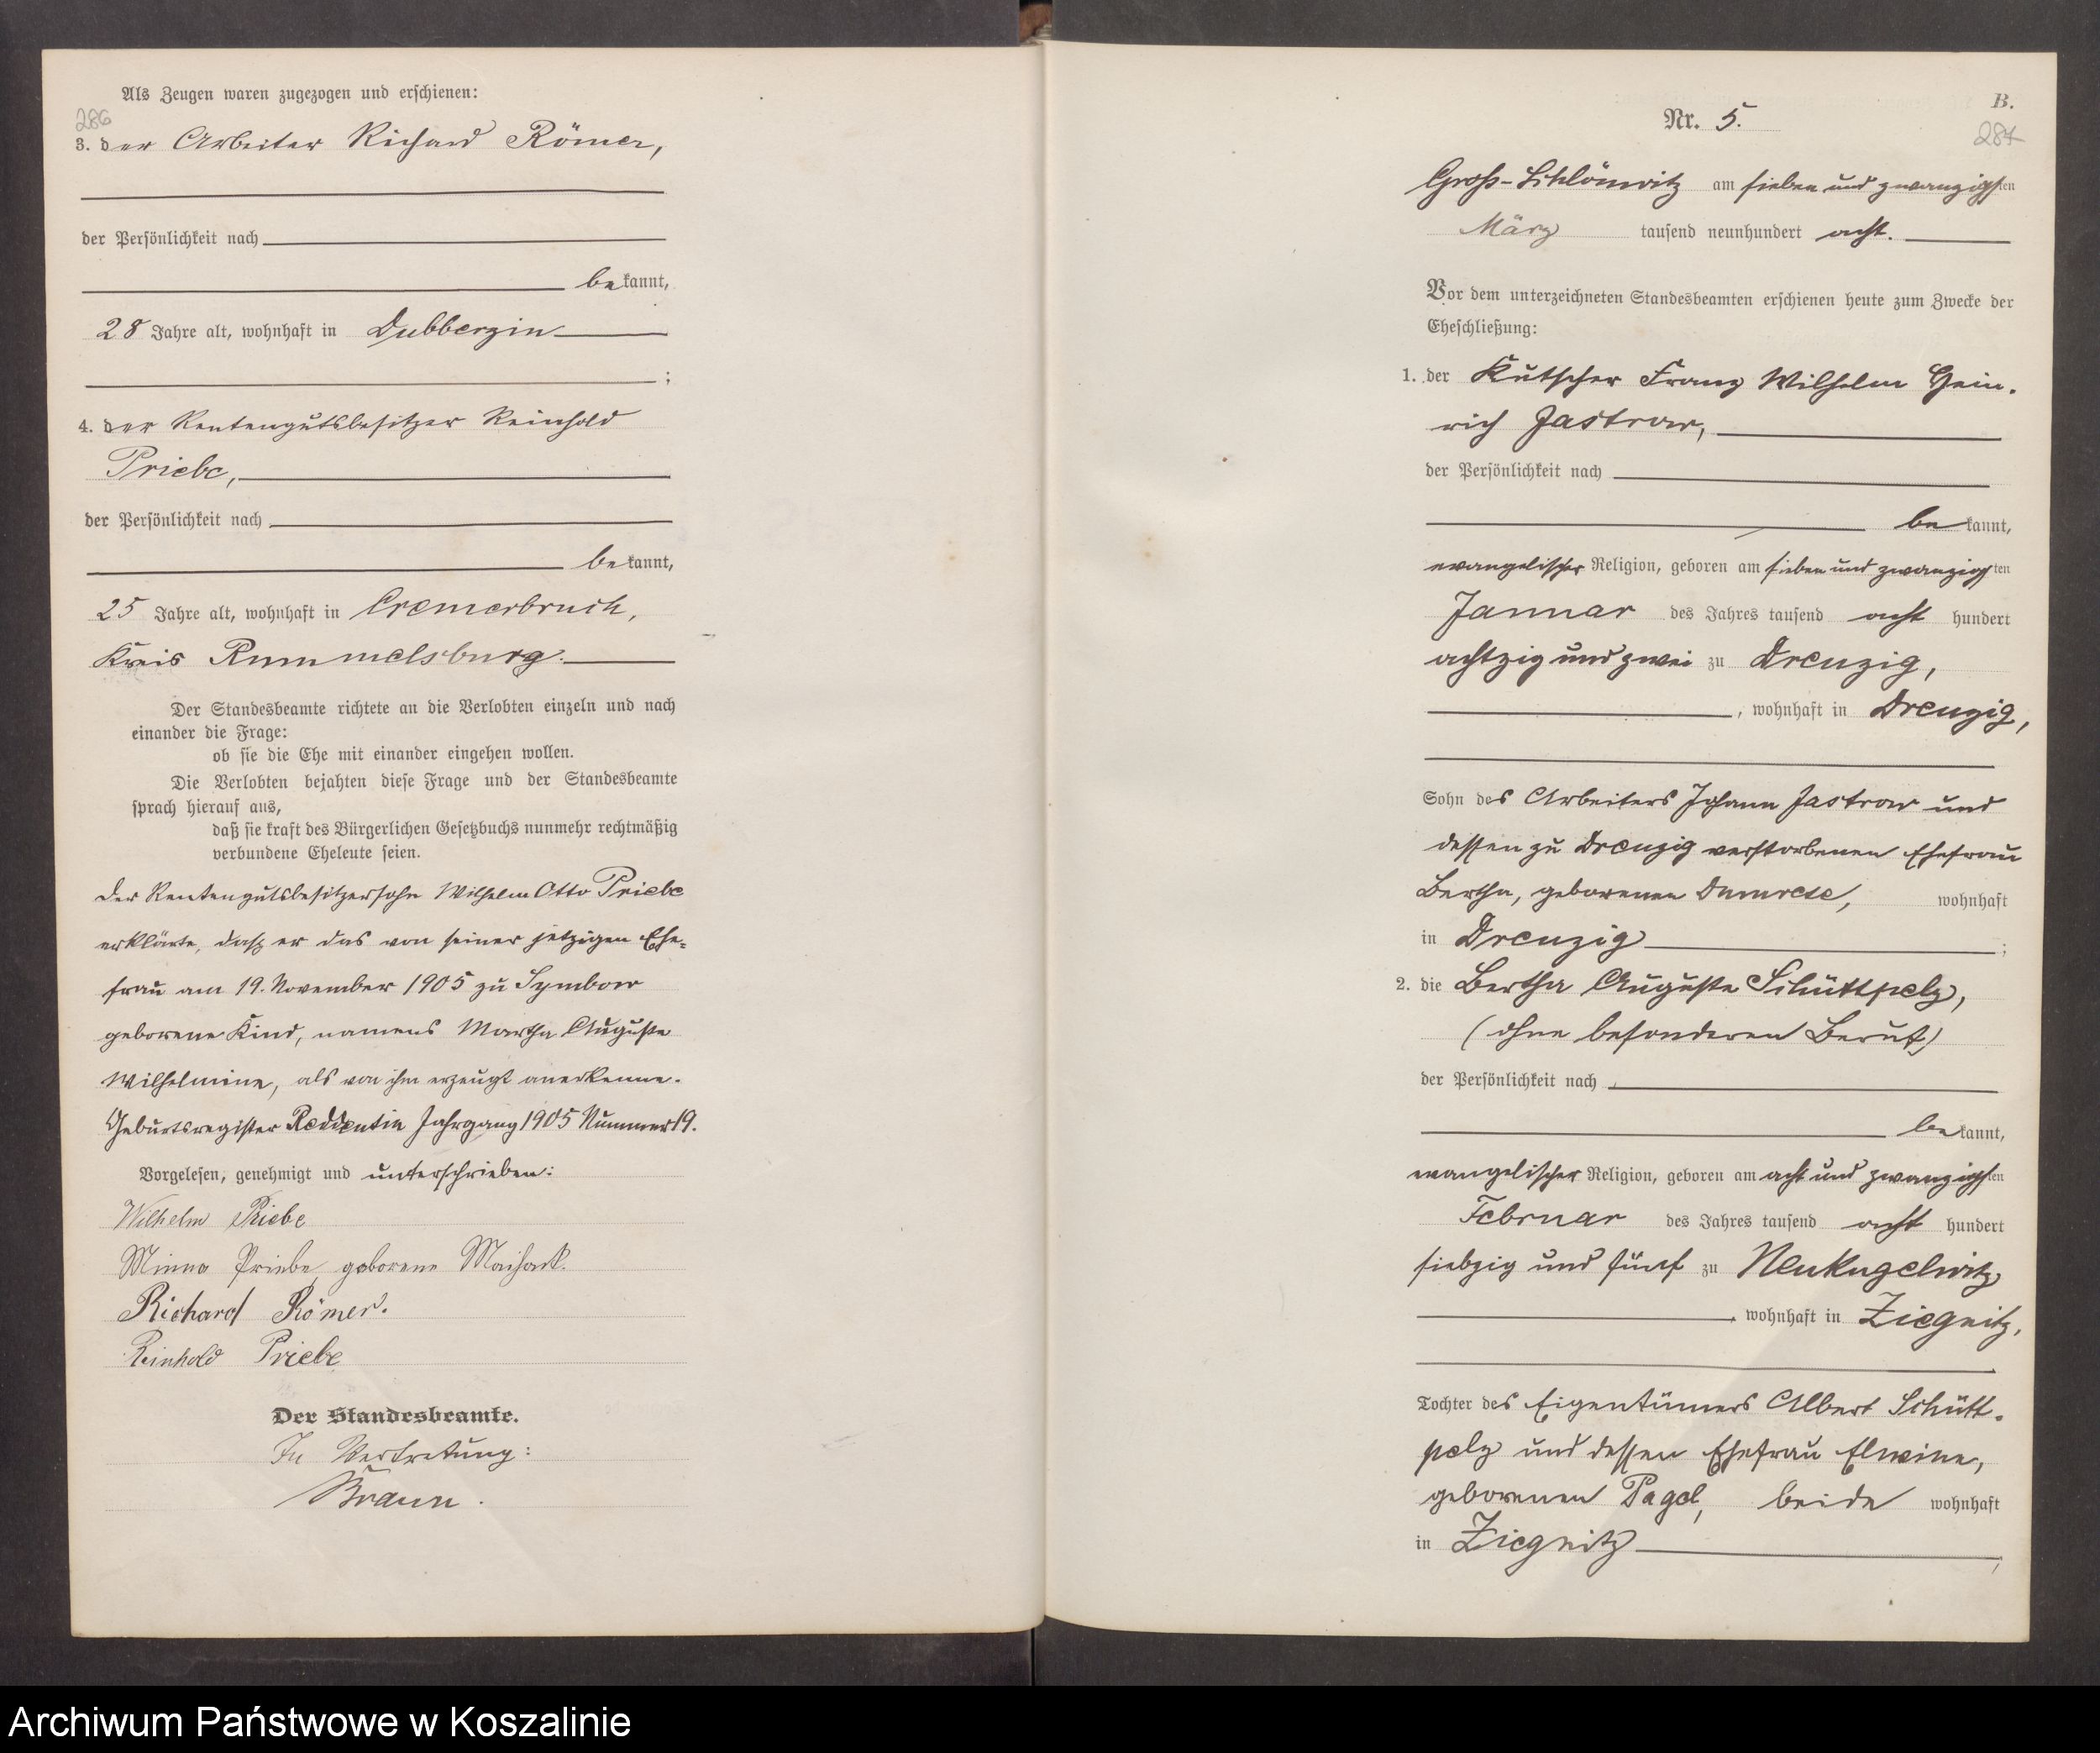 Als Zeugen waren zugezogen und erschienen:
286
3. der Arbeiter Richard Römer,
der Persönlichkeit nach
bekannt,
28 Jahre alt, wohnhaft in Dubberzin
;
4. der Rentengutsbesitzer Reinhold
Priebe,
der Persönlichkeit nach
bekannt,
25 Jahre alt, wohnhaft in Cremerbruch,
Kreis Rummelsburg.
Der Standesbeamte richtete an die Verlobten einzeln und nach
einander die Frage:
ob sie die Ehe mit einander eingehen wollen.
Die Verlobten bejahten diese Frage und der Standesbeamte
sprach hierauf aus,
daß sie kraft des Bürgerlichen Gesetzbuchs nunmehr rechtmäßig
verbundene Eheleute seien.
Der Rentengutsbesitzersohn Wilhelm Otto Priebe
erklärte, dass er das von seiner jetzigen Ehe-
frau am 19. November 1905 zu Symbow
geborene Kind, namens Martha Auguste
Wilhelmine, als von ihm erzeugt anerkenne.
Geburtsregister Reddentin Jahrgang 1905 Nummer 19.
Vorgelesen, genehmigt und unterschrieben:
Wilhelm Priebe
Minna Priebe geborene
Richard Römer.
Reinhold Priebe
Der Standesbeamte.
In Vertretung:
Braun.
B.
Nr. 5.
287
Gross-Schlönwitz am sieben und zwanzigsten
März tausend neunhundert acht.
Vor dem unterzeichneten Standesbeamten erschienen heute zum Zwecke der
Eheschließung:
1. der Kutscher Franz Wilhelm Hein-
rich Jastrow,
der Persönlichkeit nach
bekannt,
evangelischer Religion, geboren am sieben und zwanzigsten
Januar des Jahres tausend acht hundert
achtzig und zwei zu Drenzig,
, wohnhaft in Drenzig,
Sohn des Arbeiters Johann Jastrow und
dessen zu Drenzig verstorbenen Ehefrau
Bertha, geborenen Dumrese, wohnhaft
in Drenzig ;
2. die Bertha Auguste Schüttpelz,
(ohne besonderen Beruf)
der Persönlichkeit nach
bekannt,
evangelischer Religion, geboren am acht und zwanzigsten
Februar des Jahres tausend acht hundert
siebzig und fünf zu Neukugelwitz
, wohnhaft in Ziegnitz,
Tochter des Eigentümers Albert Schütt-
pelz und dessen Ehefrau Elwine,
geborenen Pagel, beide wohnhaft
in Ziegnitz ,
Archiwum Państwowe w Koszalinie